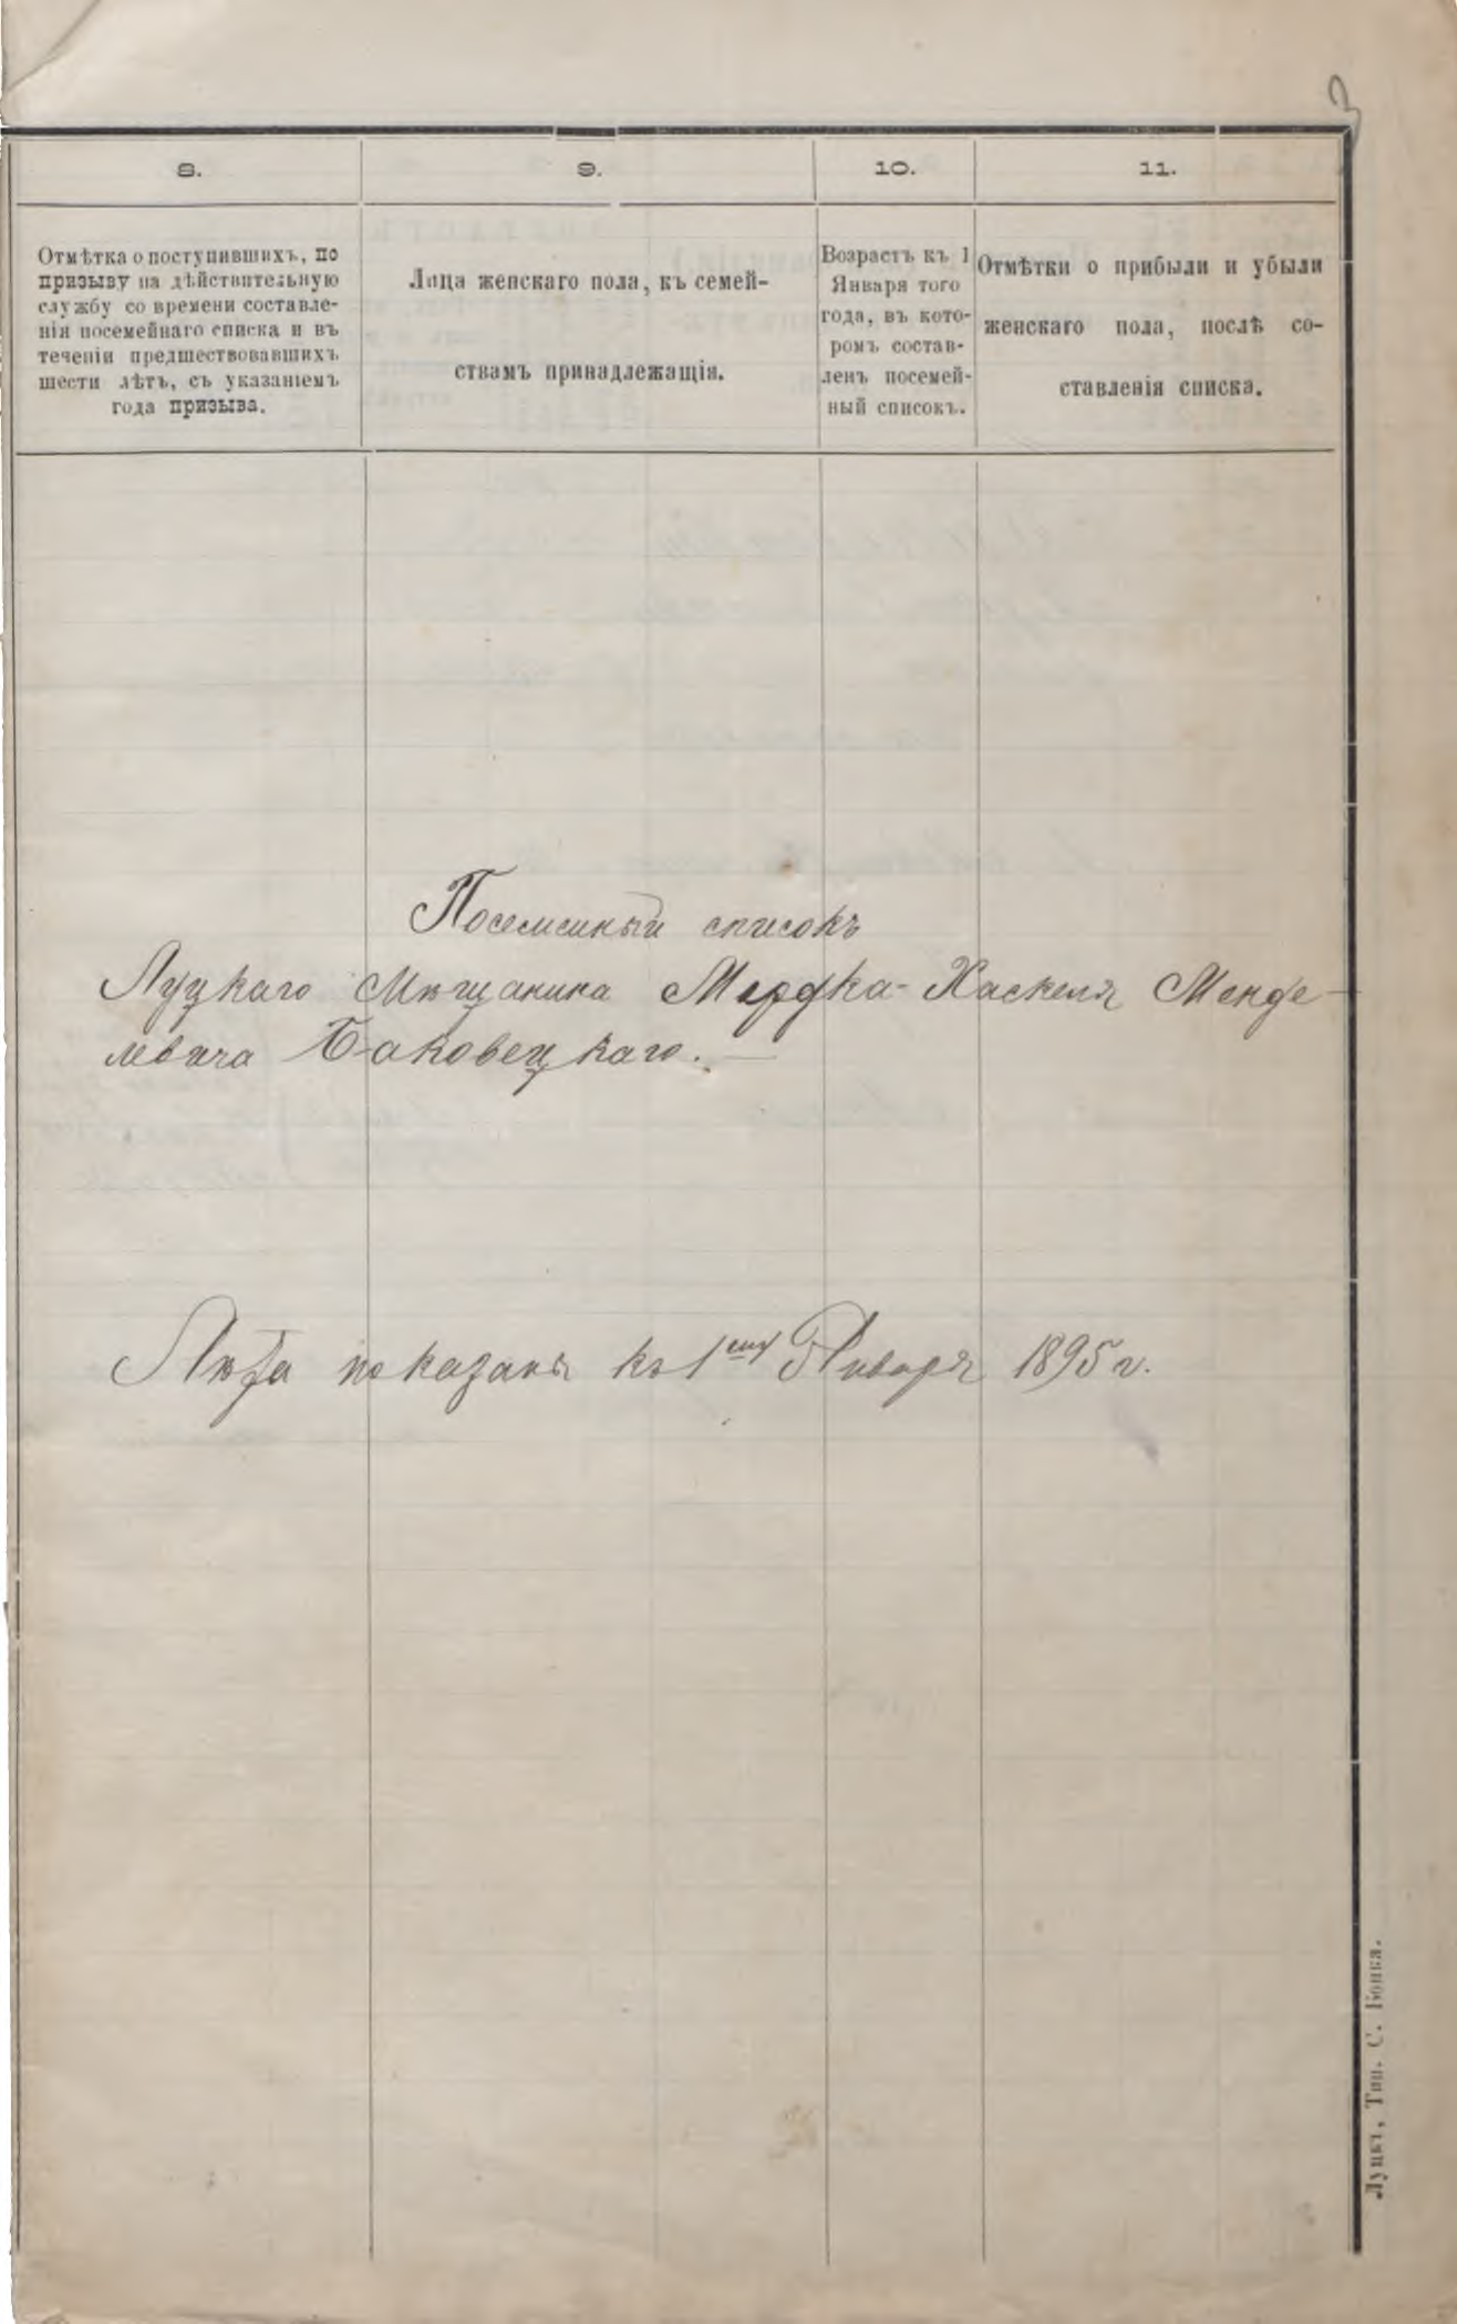 3
8.
9.
10.
11.
Отмѣтка о поступившихъ, по
призыву на дѣйствительную
службу со времени составле-
нія посемейнаго списка и въ
теченіи предшествовавшихъ
шести лѣтъ, съ указаніемъ
года призыва.
Лица женскаго пола, къ семей-
ствамъ принадлежащія.
Возрастъ къ 1
Января того
года, въ кото-
ромъ состав-
ленъ посемей-
ный списокъ.
Отмѣтки о прибыли и убыли
женскаго пола, послѣ со-
ставленія списка.
Посемейный списокъ
Луцкаго Мѣщанина Мордка-Хаскеля Менде-
левича Баковецкаго.
Лѣта показаны къ 1ому Января 1895 г.
Луцкъ, Тип. С. Бонка.